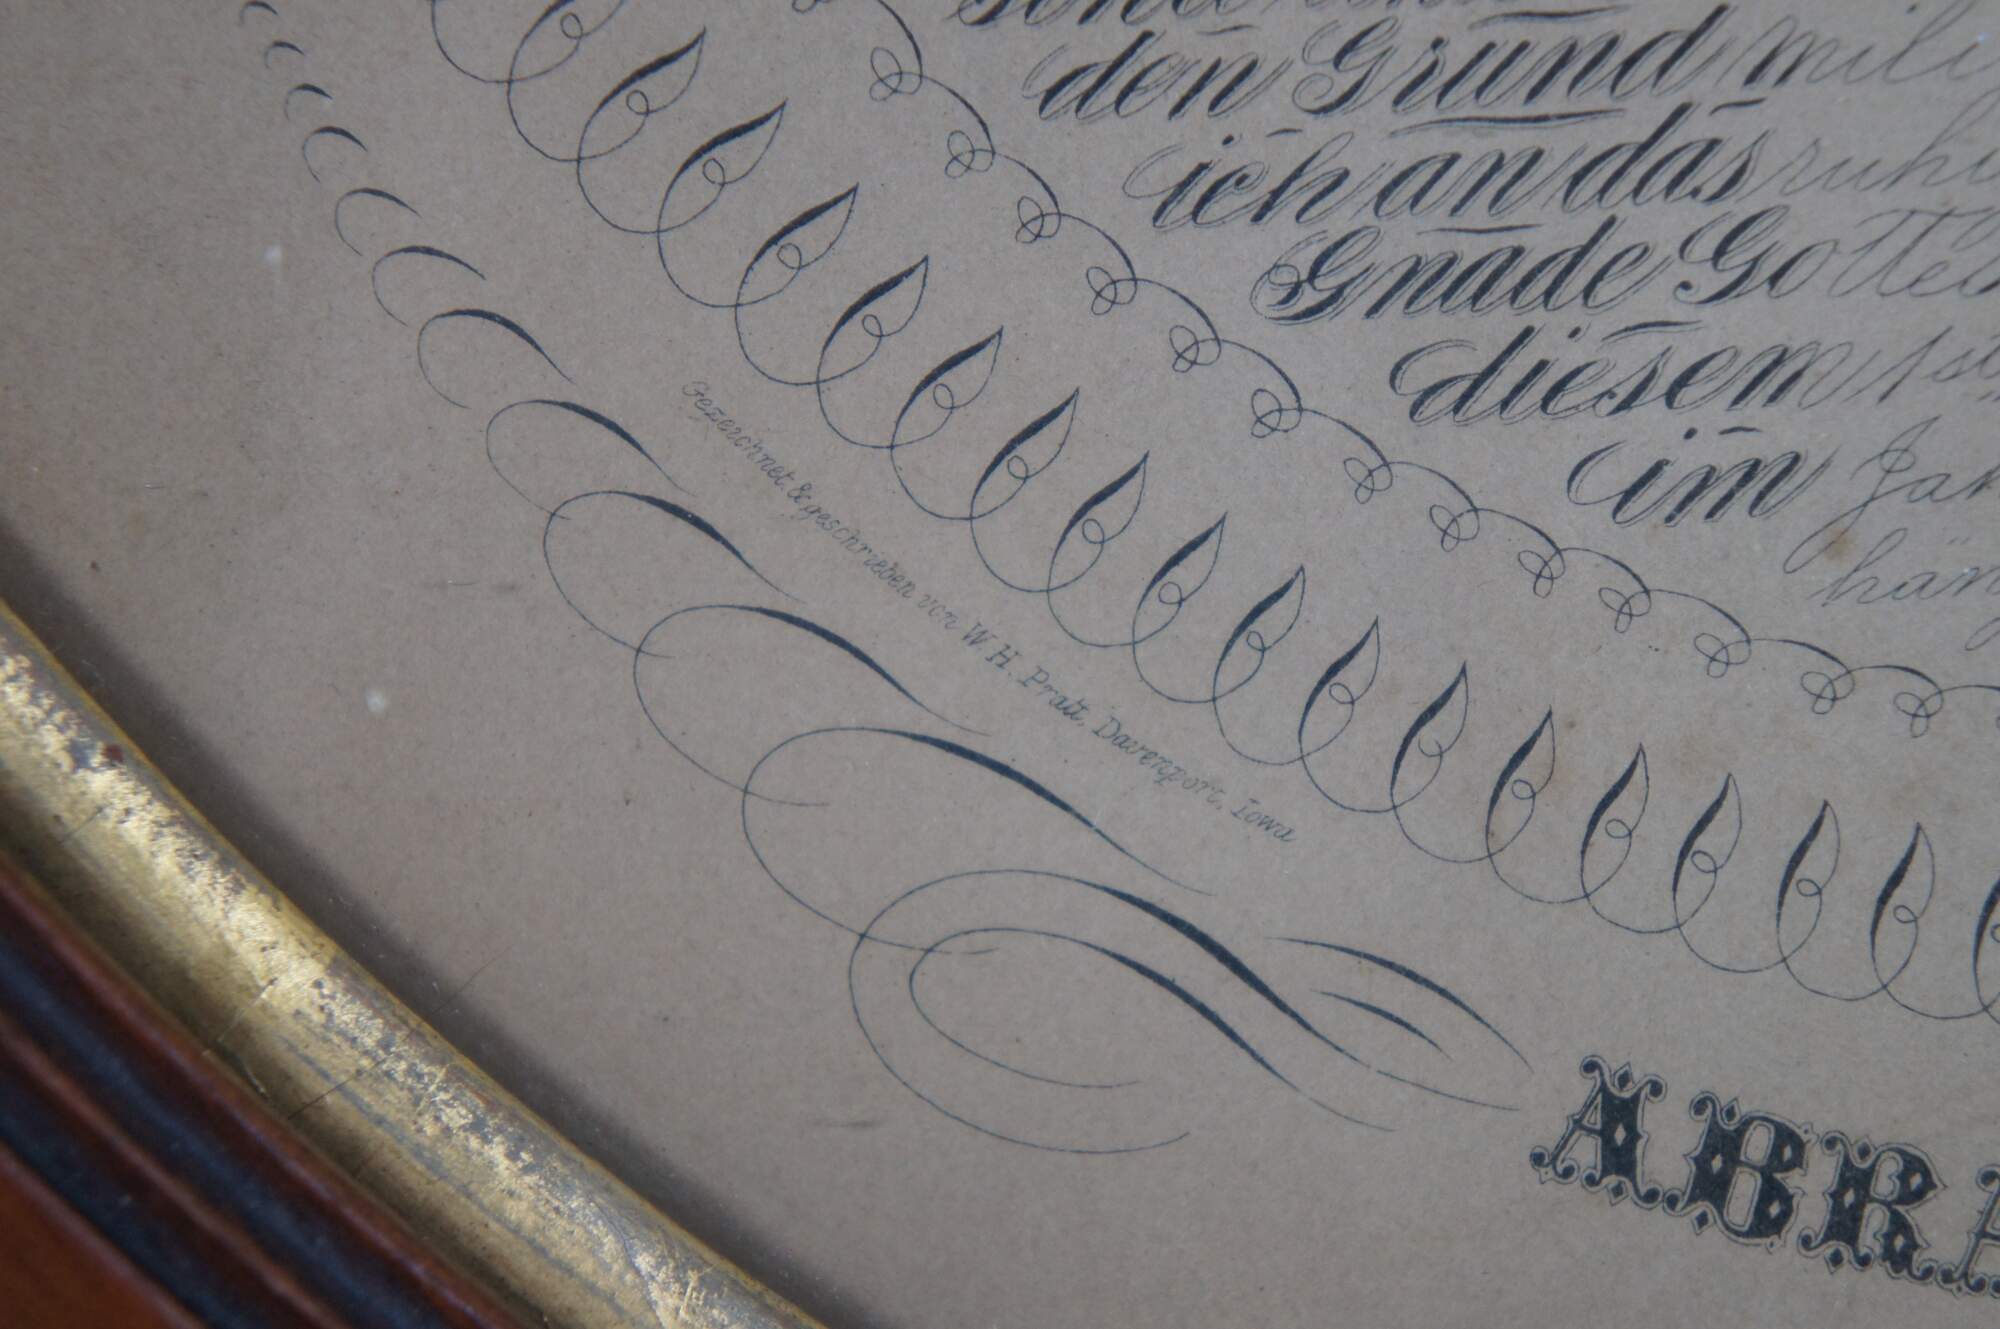 den Grund
ich an das ruhi
Gnade Gottes
diesem
im Jah
hän
Gezeichnet & geschrieben von W. H. Pratt, Davenport, Iowa
ABRA